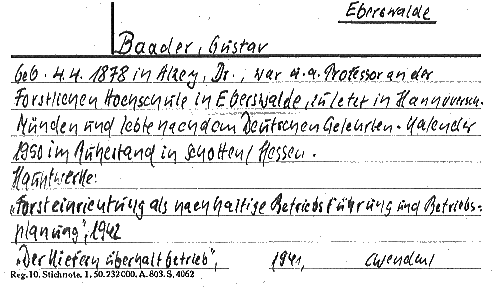 Eberswalde
Baader, Gustav
geb. 4.4. 1878 in Alzey, Dr., war u.a. Professor an der
Forstlichen Hochschule in Eberswalde, zuletzt in Hannoversch.
Münden und lebte nach dem Deutschen Gelehrten-Kalender
1950 im Ruhestand in Schotten/Hessen.
Hauptwerke:
"Forsteinrichtung als nachhaltige Betriebsführung und Betriebs-
planung", 1942
"Der Kiefernüberhaltbetrieb", 1941,
Reg. 10. Stichnote. 1. 50. 232000. A. 803. S. 4062